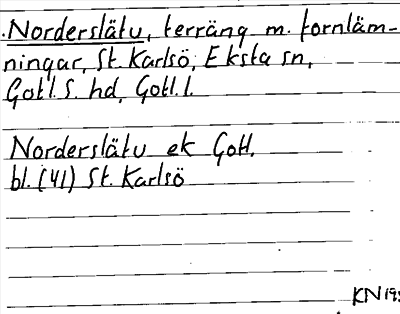 Norderslätu, terräng m. fornläm-
ningar, St. Karlsö, Eksta sn,
Gotl. S. hd, Gotl. l.
Norderslätu ek Gotl.
bl. (41) St. Karlsö
KN